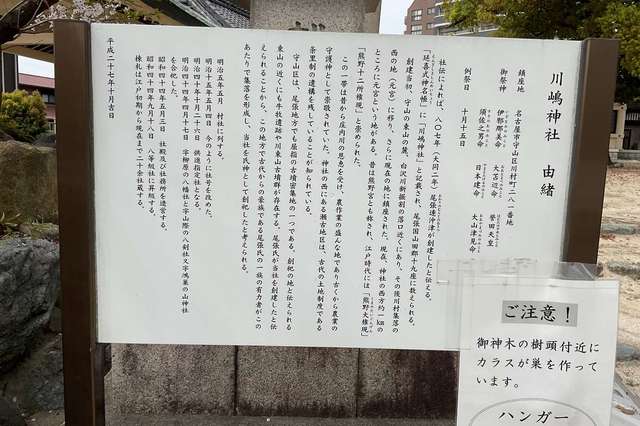 川嶋神社 由緒
鎮座地 名古屋市守山区川村町二八一番地
御祭神 伊邪那美命 大苫辺命 誉田天皇
須佐之男命 日本建命 大山津見命
例祭日 十月十五日
社伝によれば、八〇七年(大同二年)尾張連沖津が創建したと伝える。
「延喜式神名帳」に「川嶋神社」と記載され、尾張国山田郡十九座に数えられる。
創建当初、守山の東山の麓、白沢川新掘割の落口近くにあり、その後川村集落の
西の地(元宮)に移り、さらに現在の地に鎮座された。現在、神社の西方約一kmの
ところに元宮という地がある。昔は熊野宮とも称され、江戸時代には「熊野大権現」
「熊野十二所権現」と崇められた。
この一帯は昔から庄内川の恩恵を受け、農作業の盛んな地であり古くから農業の
守護神として崇敬されていた。神社の西にある瀬古地区は、古代の土地制度である
条里制の遺構を残していることが知られている。
守山区は、尾張地方でも屈指の古墳密集地の一つである。創祀の地と伝えられる
東山の近くにも牛牧遺跡や川東山古墳群が存在する。尾張氏が当社を創建したと伝
えられることから、この地方で古代からの豪族である尾張氏の一族の有力者がこの
あたりで集落を形成し、当社を氏神として創祀したと考えられる。
明治五年五月 村社に列する。
明治十五年五月四日 今のように社号を改めた。
明治四十年十月二十六日 供進指定社となる。
明治四十四年四月十七日 字柳原の八幡社と字山際の八剣社又字鴻巣の山神社
を合祀した。
昭和四十四年五月三日 社殿及び社務所を造営する。
昭和四十四年九月十八日 八等級社に昇級する。
棟札は江戸初期から現在まで二十余社蔵する。
平成二十七年十月吉日
ご注意!
御神木の樹頭付近に
カラスが巣を作って
います。
ハンガー